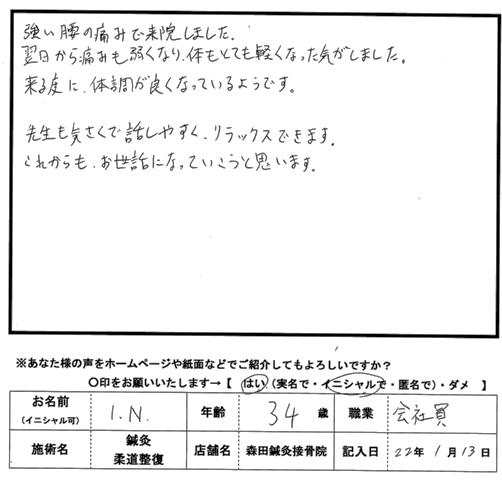 強い腰の痛みで来院しました.
翌日から痛みも弱くなり、体もとても軽くなった気がしました。
来る度に、体調が良くなっているようです。
先生も気さくで話しやすく、リラックスできます.
これからも、お世話になっていこうと思います.
※あなた様の声をホームページや紙面などでご紹介してもよろしいですか？
〇印をお願いいたします→【 はい（実名で・イニシャルで・匿名で）・ダメ 】
お名前（イニシャル可） I.N. 年齢 34 歳 職業 会社員
施術名 鍼灸 柔道整復 店舗名 森田鍼灸接骨院 記入日 22年 1月 13日